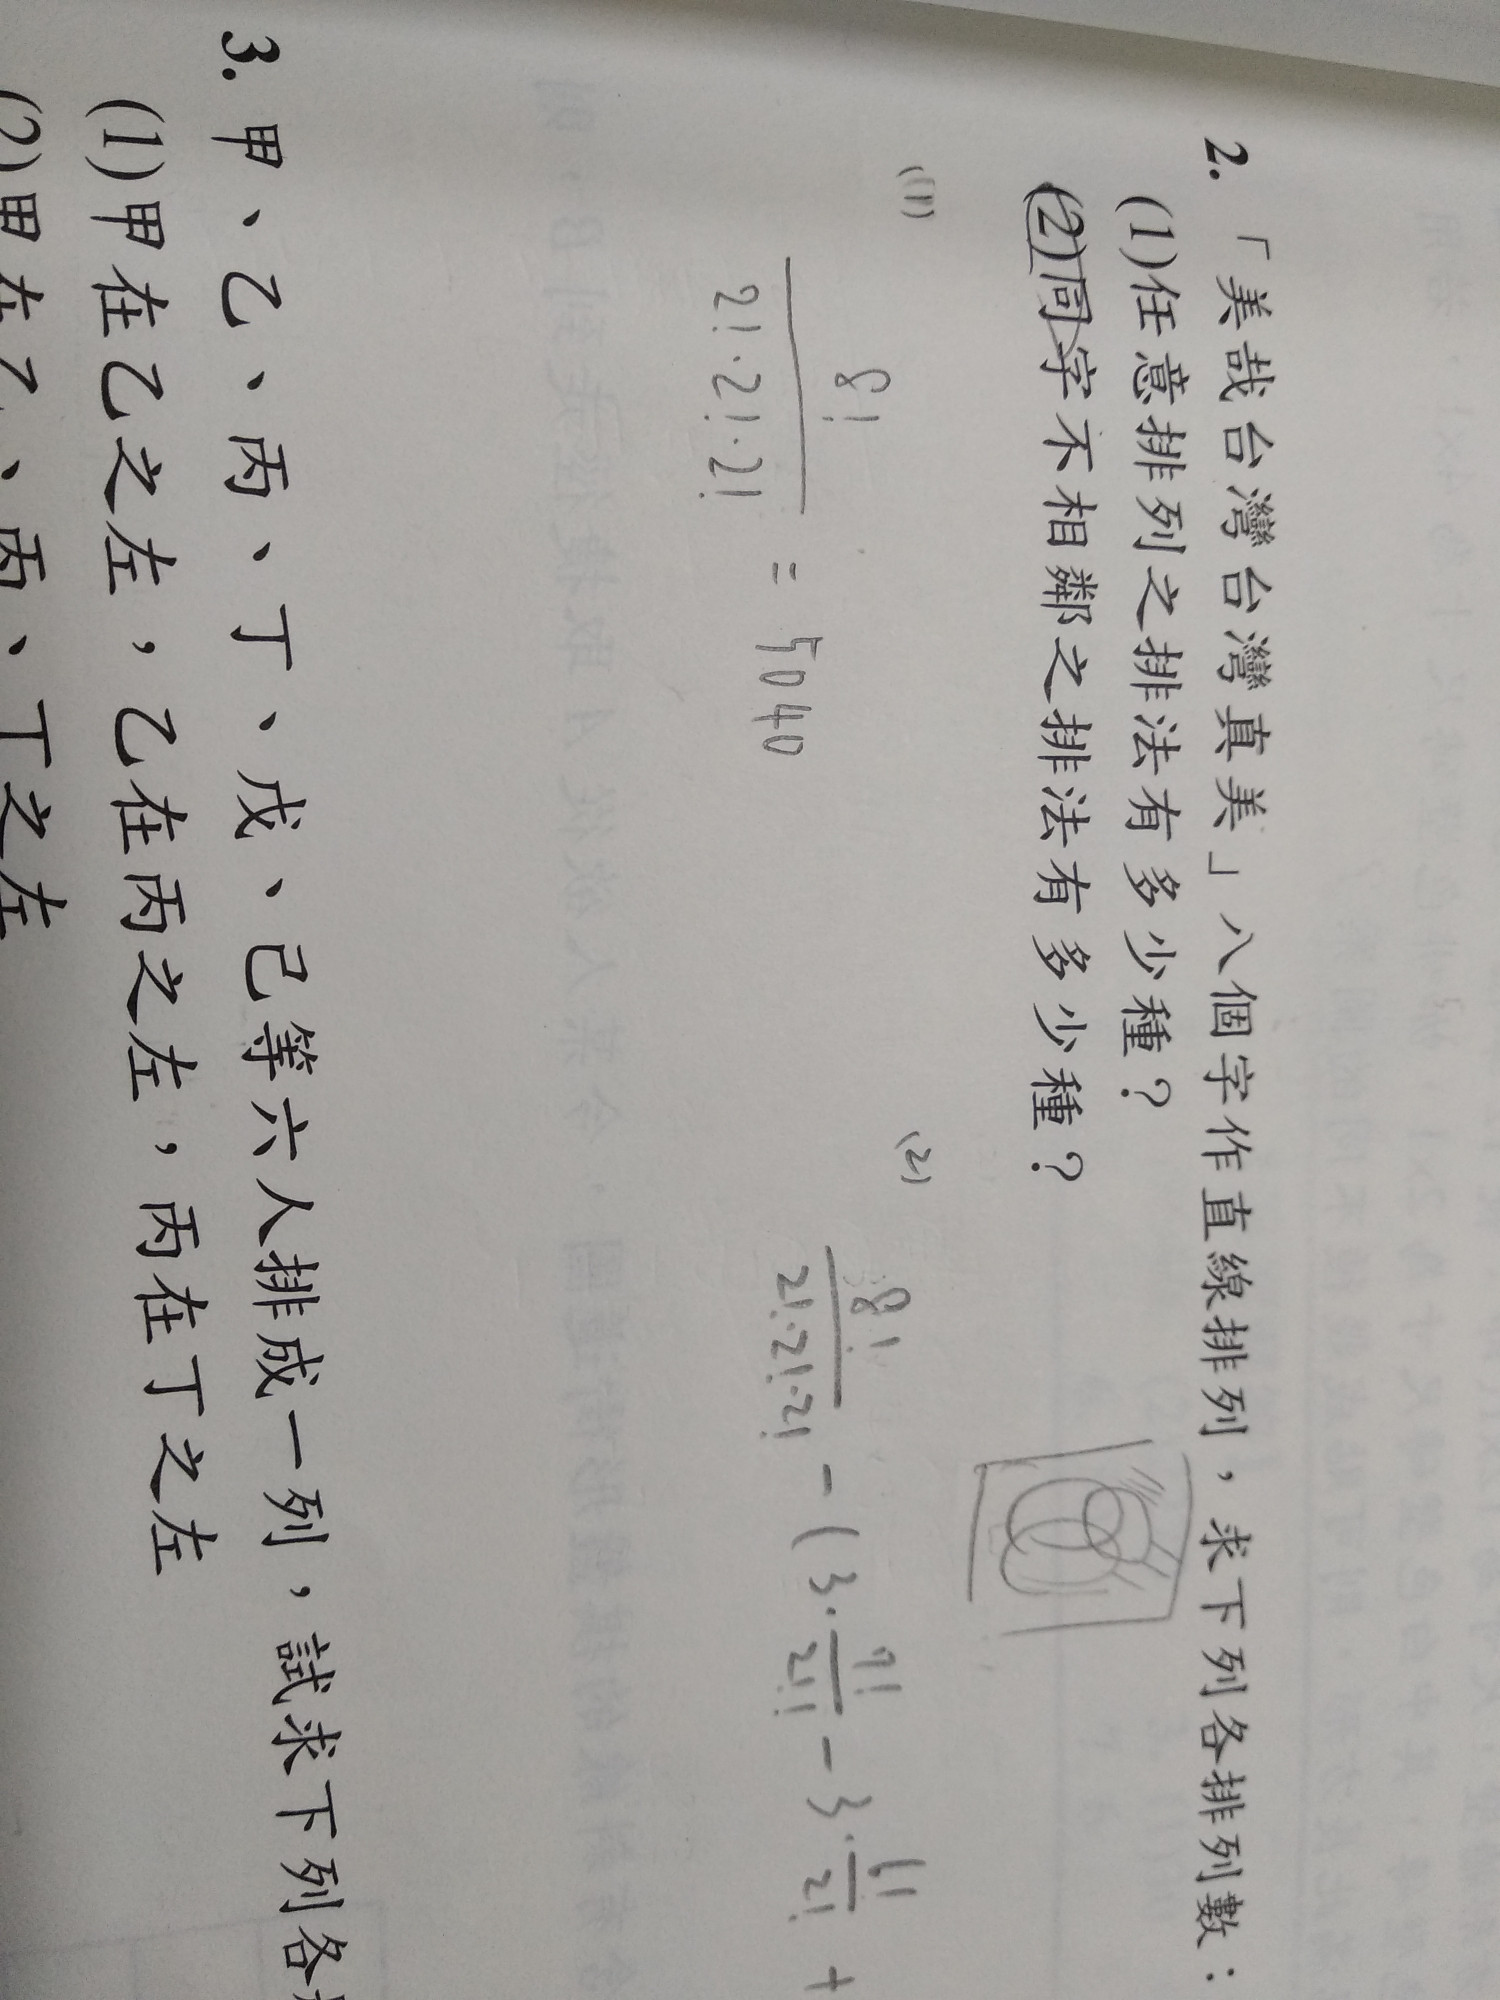 2. 「美哉台灣台灣真美」八個字作直線排列，求下列各排列數：
(1)任意排列之排法有多少種？
(2)同字不相鄰之排法有多少種？
(1)
8!
2!·2!·2!
= 5040
(2)
8!
2!·2!·2!
- (3·
7!
2!
- 3·
6!
2!
+
3. 甲、乙、丙、丁、戊、己等六人排成一列，試求下列各
(1)甲在乙之左，乙在丙之左，丙在丁之左
(2)甲在乙、丙、丁之左